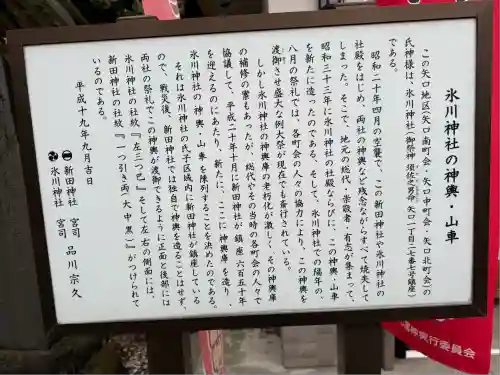 氷川神社の神輿・山車
この矢口地区(矢口南町会・矢口中町会・矢口北町会)の
氏神様は、氷川神社(御祭神 須佐之男命 矢口一丁目二七番七号鎮座)
である。
昭和二十年四月の空襲で、この新田神社や氷川神社の
社殿をはじめ、両社の神輿など残念ながらすべて焼失して
しまった。そこで、地元の総代・崇敬者・有志が集まって、
昭和三十三年に氷川神社の社殿ならびに、この神輿・山車
を新たに造ったのである。そして、氷川神社での隔年の、
八月の祭礼では、各町会の人々の協力により、この神輿を
渡御させ盛大な例大祭が現在でも斎行されている。
しかし氷川神社の神輿庫の老朽化が激しく、その神輿庫
の補修の案もあったが、総代やその当時の各町会の人々で
協議して、平成二十年十月に新田神社が鎮座六百五十年
を迎えるのにあたり、新たに、ここに神輿庫を造り、
氷川神社の神輿・山車を陳列することを決めたのである。
それは氷川神社の氏子区域内に新田神社が鎮座している
ので、戦災後、新田神社では独自で神輿を造ることはせず、
両社の祭礼でこの神輿が渡御できるように正面と後部には
氷川神社の社紋『左三つ巴』そして左右の側面には、
新田神社の社紋『一つ引き両(大中黒)』がつけられて
いるのである。
平成十九年九月吉日
新田神社 宮司 品川宗久
氷川神社 宮司
神実行委員会